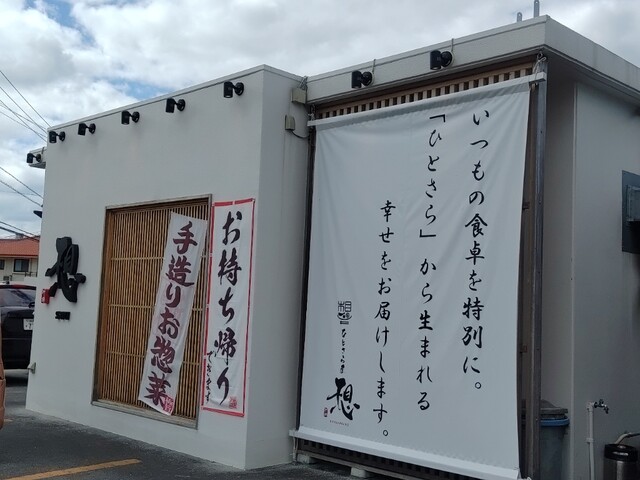 いつもの食卓を特別に。
「ひとさら」から生まれる
幸せをお届けします。
想
想
お持ち帰り
できます
手造りお惣菜